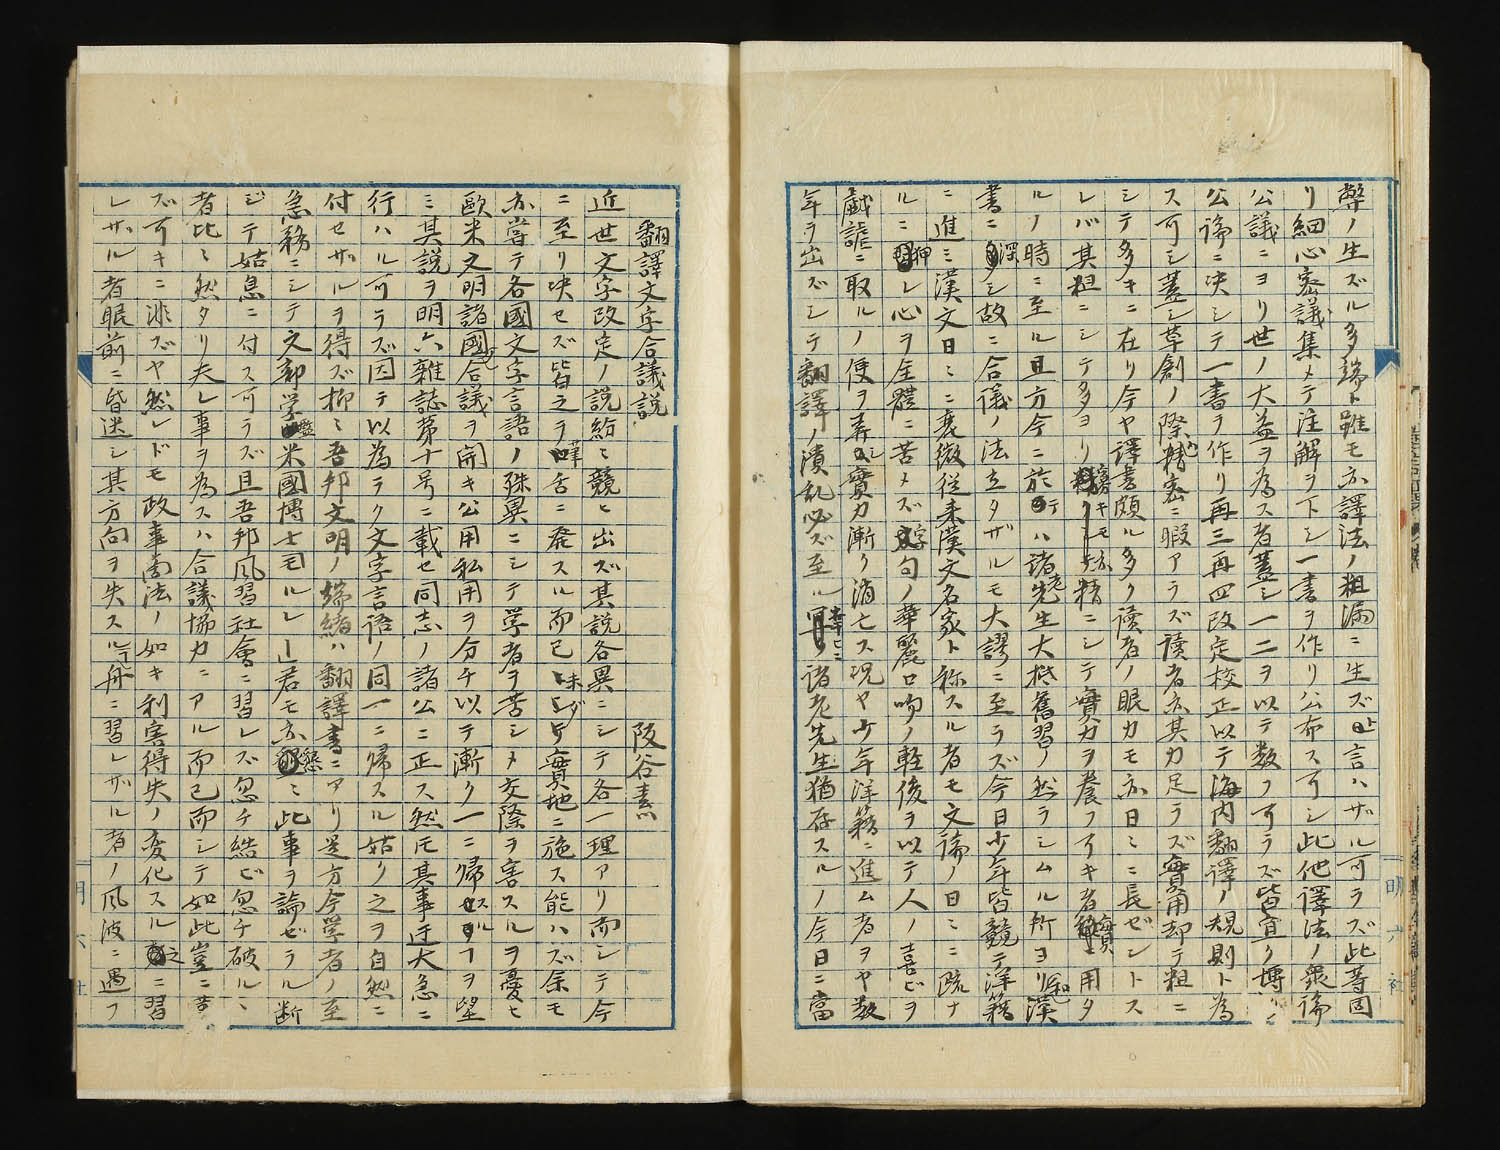 弊ノ生ズル多端ト雖モ亦譯法ノ粗漏ニ生ズト言ハザル可ラズ此等固
リ細心密議集メテ注解ヲ下シ一書ヲ作リ公布ス可シ此他譯法ノ衆論
公議ニヨリ世ノ大益ヲ為ス者蓋シ一二ヲ以テ数フ可ラズ皆宜ク博ク
公論ニ決シテ一書ヲ作リ再三再四改定校正以テ海内翻譯ノ規則ト為
ス可シ蓋シ草創ノ際精密ニ暇アラズ讀者亦其力足ラズ實用却テ粗ニ
シテ多キニ在リ今ヤ譯書頗ル多ク讀者ノ眼力モ亦日ミニ長ゼントス
レバ其粗ニシテ多ヨリ寡キモ精ニシテ實力ヲ養フ可キ者實用タ
ルノ時ニ至ル且方今ニ於テハ諸老先生大抵舊習ノ然ラシムル所ヨリ漢
書ニ深シ故ニ合議ノ法立タザルモ大謬ニ至ラズ今日少年皆競テ洋籍
ニ進ミ漢文日ミニ衰微従来漢文名家ト称スル者モ文論ノ日ミニ疏ナ
ルニ狎レ心ヲ全體ニ苦メズ字句ノ華麗口吻ノ軽俊ヲ以テ人ノ喜ビヲ
戯謔ニ取ルノ便ヲ弄シ實力漸ク消セス况ヤ少年洋籍ニ進ム者ヲヤ数
年ヲ出ズシテ翻譯ノ潰乱必ズ至ル幸ニ諸老先生猶存スルノ今日ニ當
翻譯文字合議説
阪谷素
近世文字改定ノ説紛ミ競ヒ出ズ其説各異ニシテ各一理アリ而シテ今
ニ至リ决セズ皆之ヲ筆舌ニ発スル而已未ダ實地ニ施ス能ハズ余モ
亦嘗テ各國文字言語ノ殊異ニシテ学者ヲ苦シメ交際ヲ害スルヲ憂ヒ
歐米文明諸國合議ヲ開キ公用私用ヲ分チ以テ漸ク一ニ帰スルヲ望
ミ其説ヲ明六雜誌苐十号ニ載セ同志ノ諸公ニ正ス然𪜈其事迂大急ニ
行ハル可ラズ因テ以為ラク文字言語ノ同一ニ帰スル姑ク之ヲ自然ニ
付セザルヲ得ズ抑ミ吾邦文明ノ端緒ハ翻譯書ニアリ是方今学者ノ至
急務ニシテ文部学監米國博士モルレー君モ亦懇ミ此事ヲ論ゼラル断
ジテ姑息ニ付ス可ラズ且吾邦風習社會ニ習レズ忽チ結ビ忽チ破ルミ
者比ミ然タリ夫レ事ヲ為スハ合議協力ニアル而已而シテ如此豈ニ
ズ可キニ非ズヤ然レドモ政事商法ノ如キ利害得失ノ変化スル之ニ習
レザル者眼前ニ昏迷シ其方向ヲ失スル舟ニ習レザル者ノ風波ニ遇フ
明六社
明六社